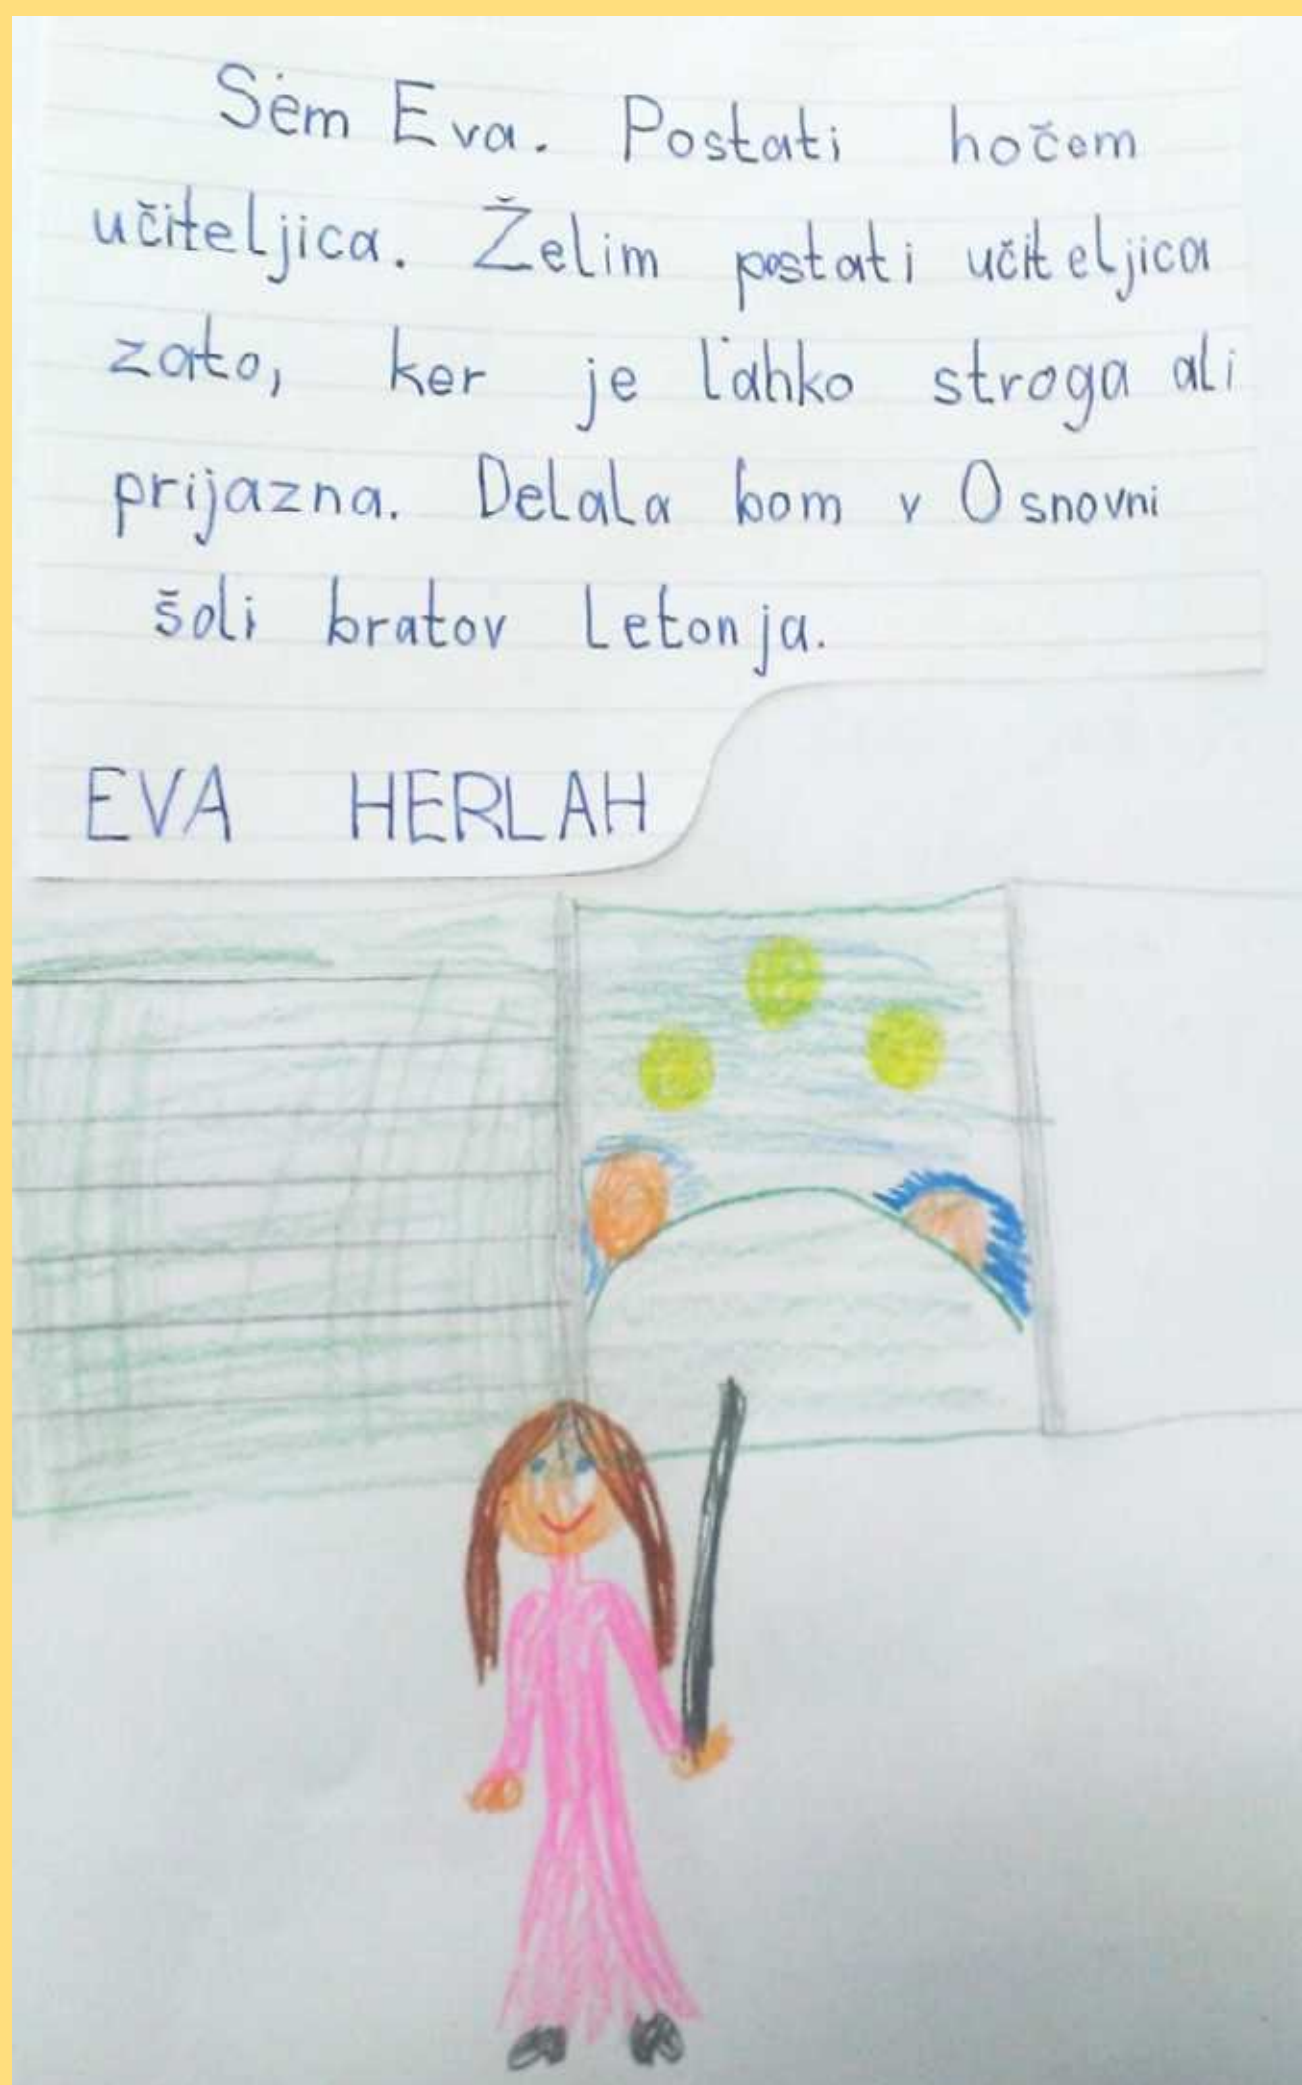 Sem Eva. Postati hočem
učiteljica. Želim postati učiteljica
zato, ker je lahko stroga ali
prijazna. Delala bom v Osnovni
šoli bratov Letonja.
EVA HERLAH